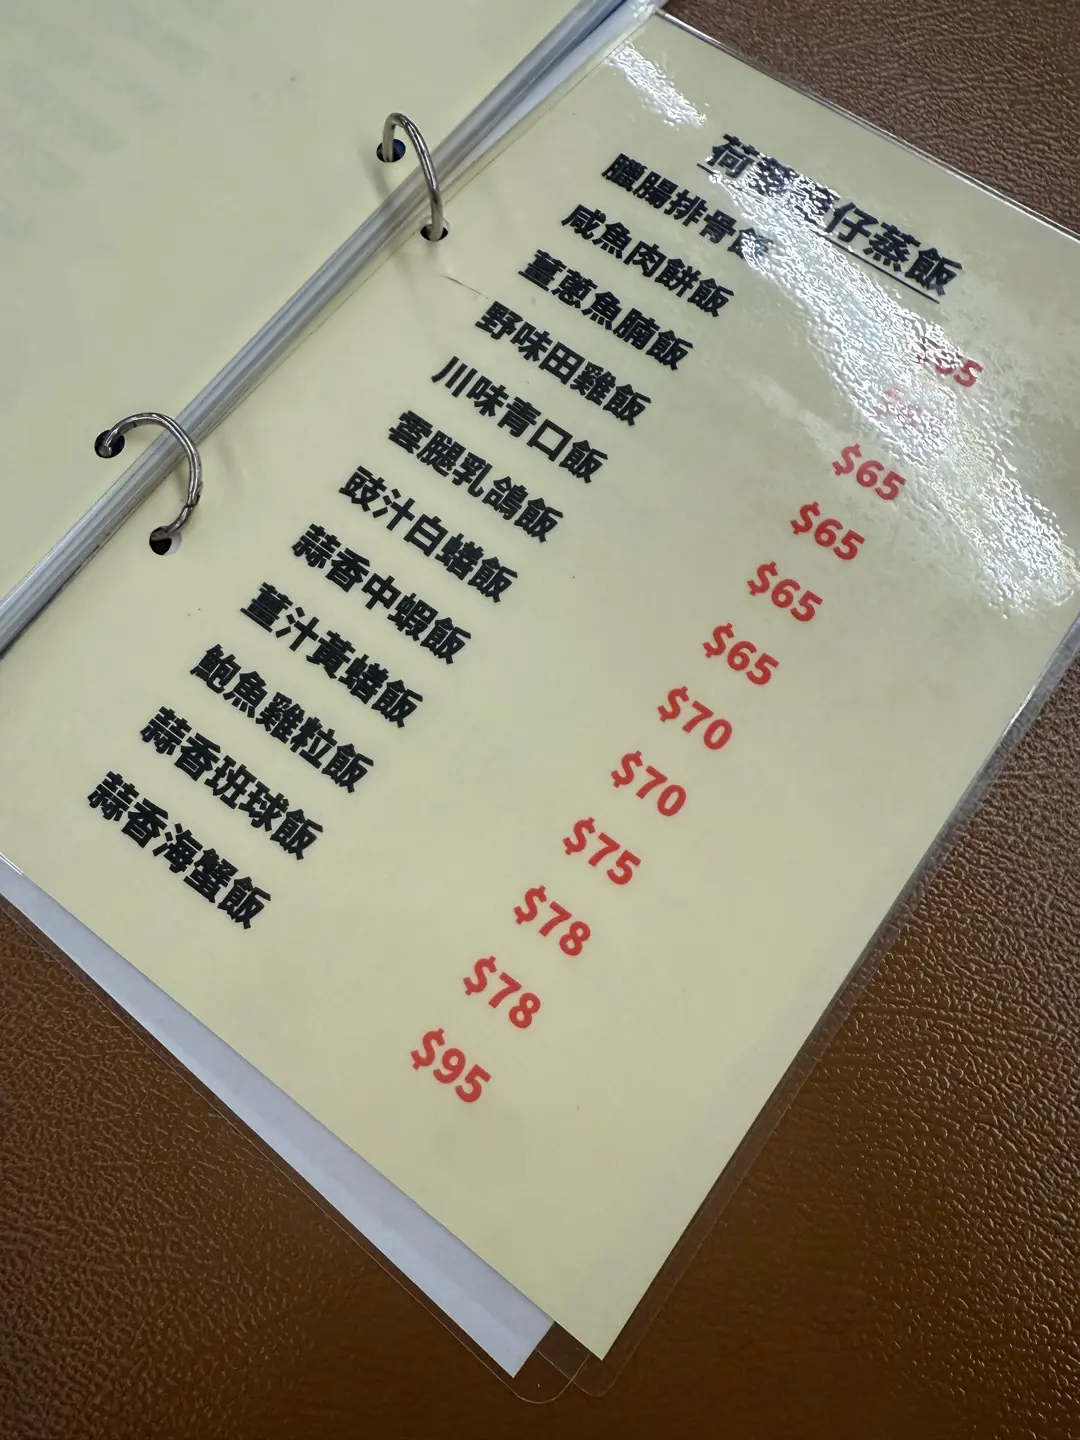 荷葉籠仔蒸飯
臘腸排骨飯
咸魚肉餅飯
薑蔥魚腩飯 $65
野味田雞飯 $65
川味青口飯 $65
雲腿乳鴿飯 $65
豉汁白蟮飯 $70
蒜香中蝦飯 $70
薑汁黃蟮飯 $75
鮑魚雞粒飯 $78
蒜香班球飯 $78
蒜香海蟹飯 $95